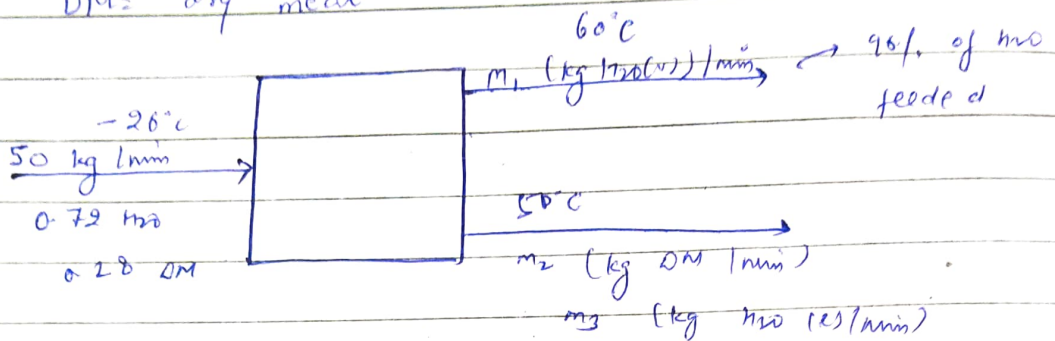 DM = dry meat
60°C
m₁ (kg H₂O(v))/min → 96% of H₂O
feeded
-26°C
50 kg/min
0.72 H₂O
0.28 DM
50°C
m₂ (kg DM/min)
m₃ (kg H₂O (l)/min)